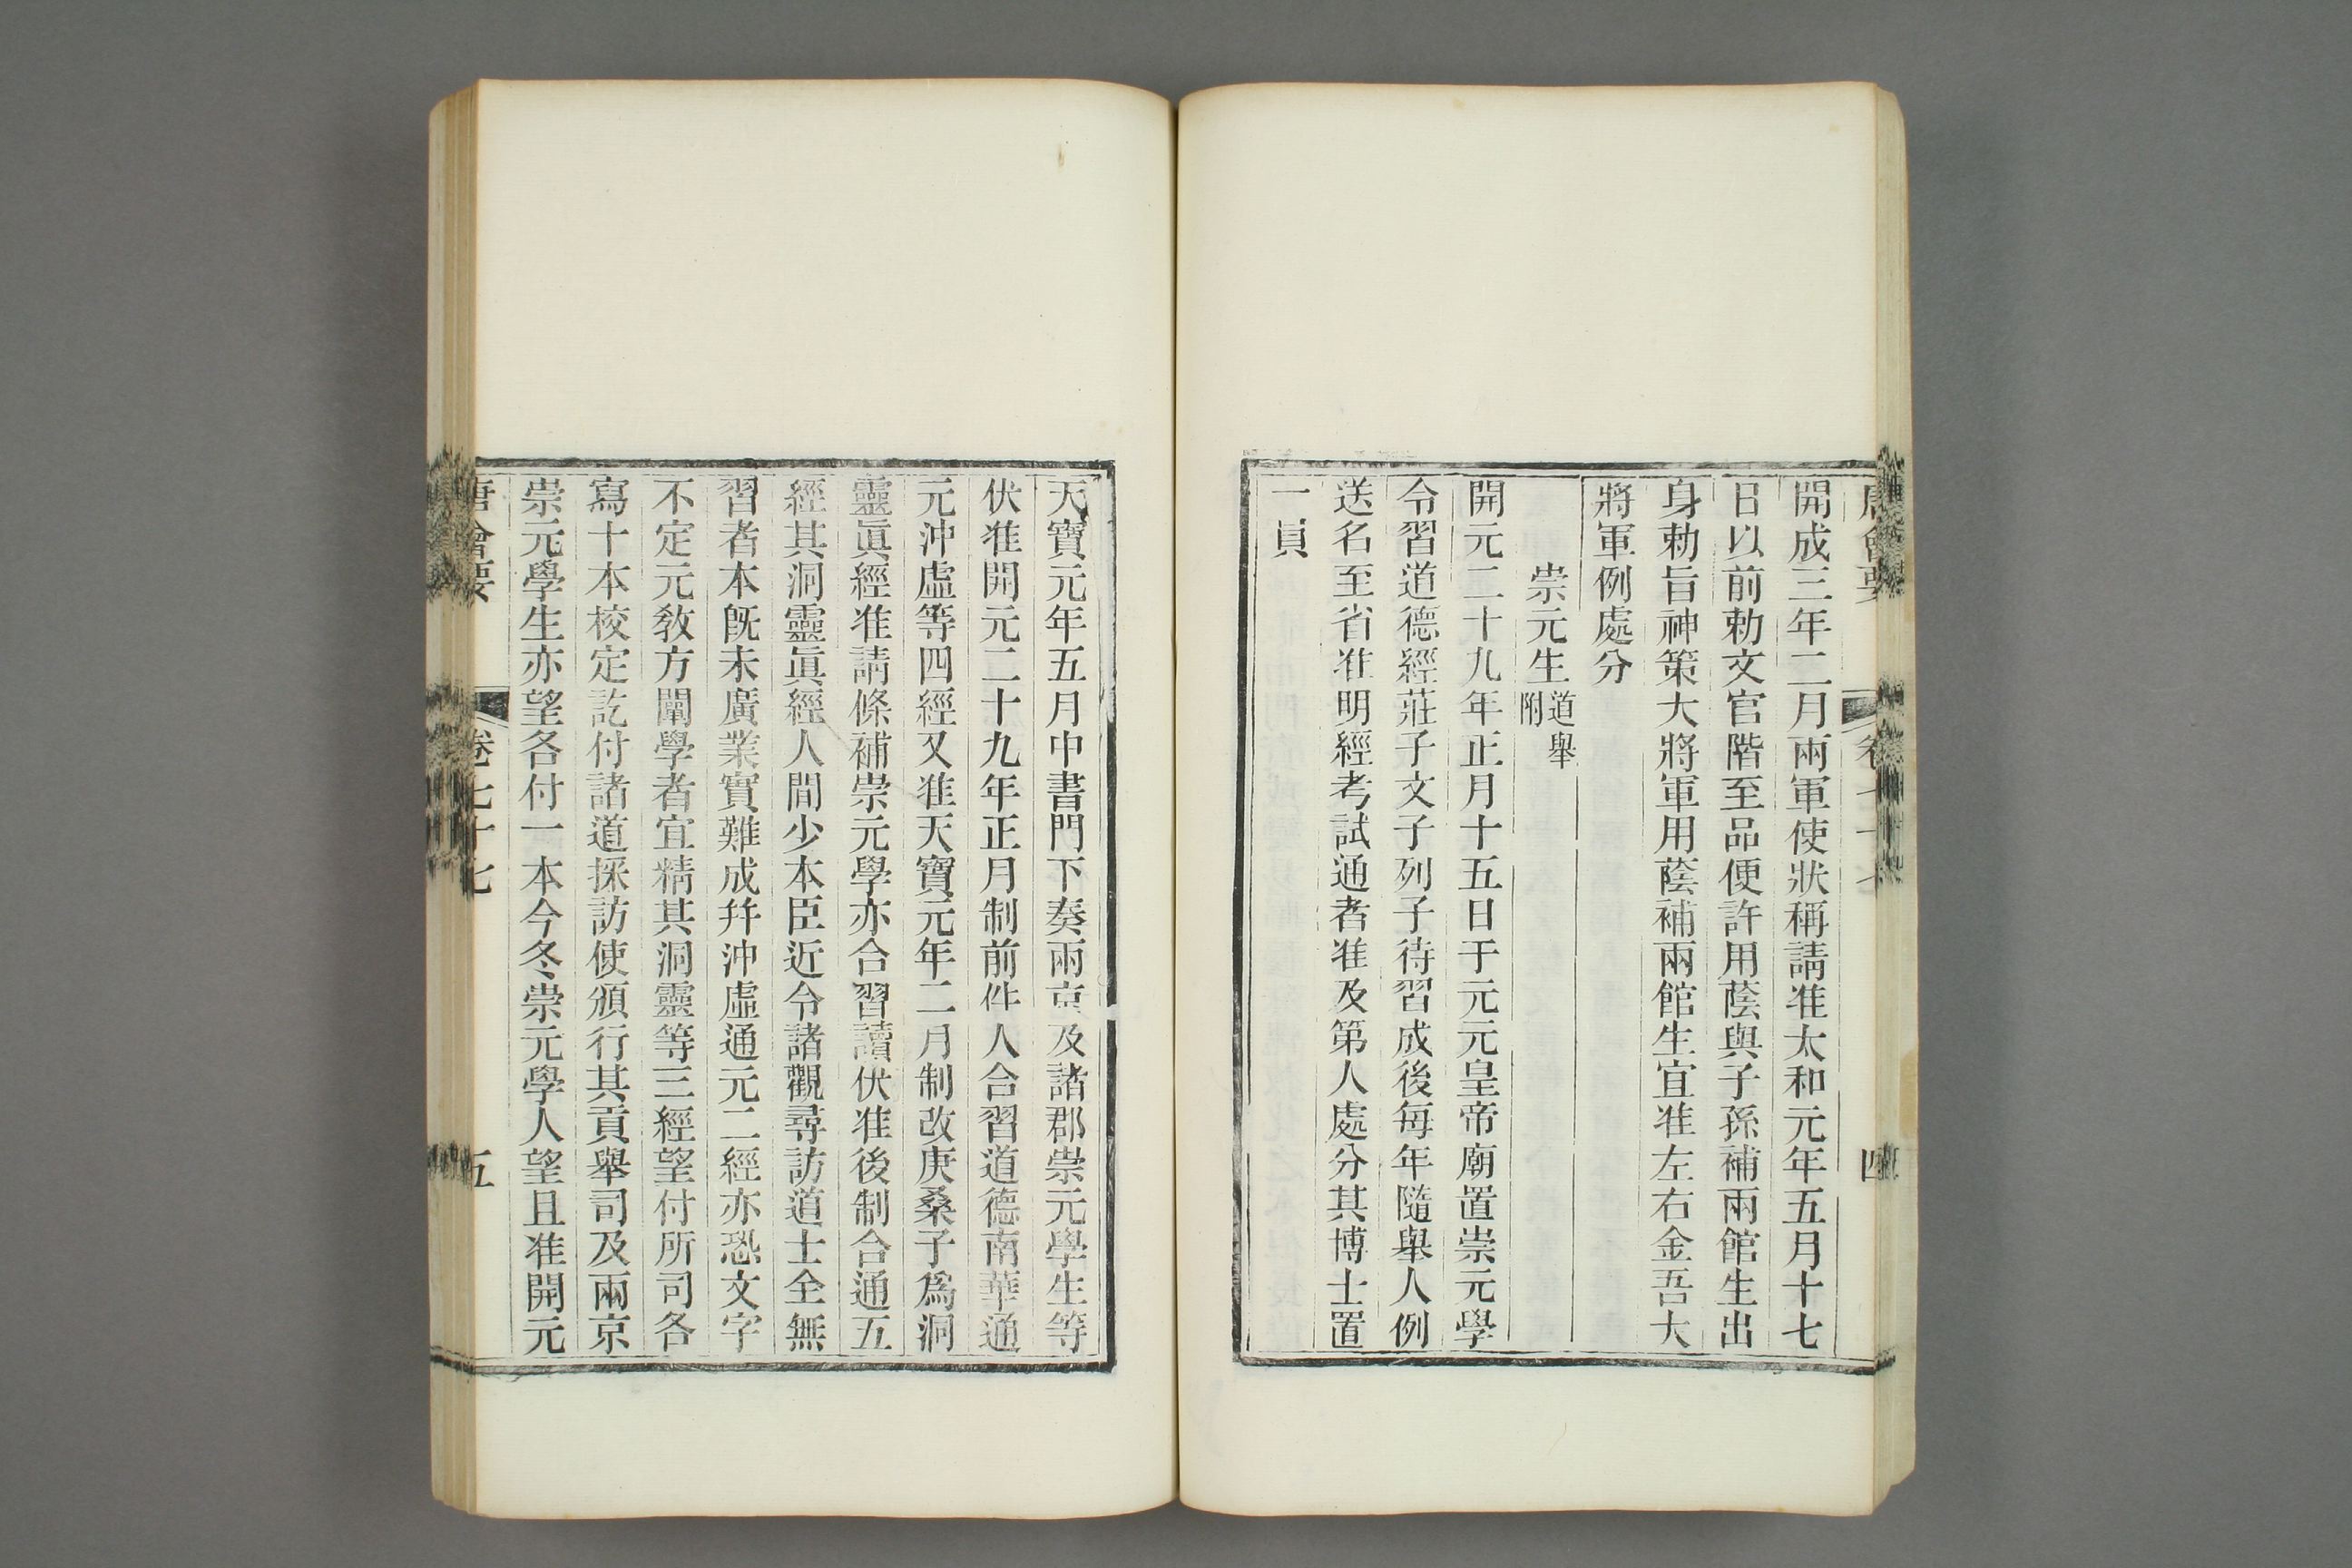 唐會要 卷七十七 四
開成三年二月兩軍使狀稱請准太和元年五月十七
日以前勅文官階至品便許用蔭與子孫補兩館生出
身勅旨神策大將軍用蔭補兩館生宜准左右金吾大
將軍例處分
崇元生道舉附
開元二十九年正月十五日于元元皇帝廟置崇元學
令習道德經莊子文子列子待習成後每年隨舉人例
送名至省准明經考試通者准及第人處分其博士置
一員
天寶元年五月中書門下奏兩京及諸郡崇元學生等
伏准開元二十九年正月制前件人合習道德南華通
元沖虛等四經又准天寶元年二月制改庚桑子爲洞
靈眞經准請條補崇元學亦合習讀伏准後制合通五
經其洞靈眞經人間少本臣近令諸觀尋訪道士全無
習者本旣未廣業實難成幷沖虛通元二經亦恐文字
不定元敎方闡學者宜精其洞靈等三經望付所司各
寫十本校定訖付諸道採訪使頒行其貢舉司及兩京
崇元學生亦望各付一本今冬崇元學人望且准開元
唐會要 卷七十七 五